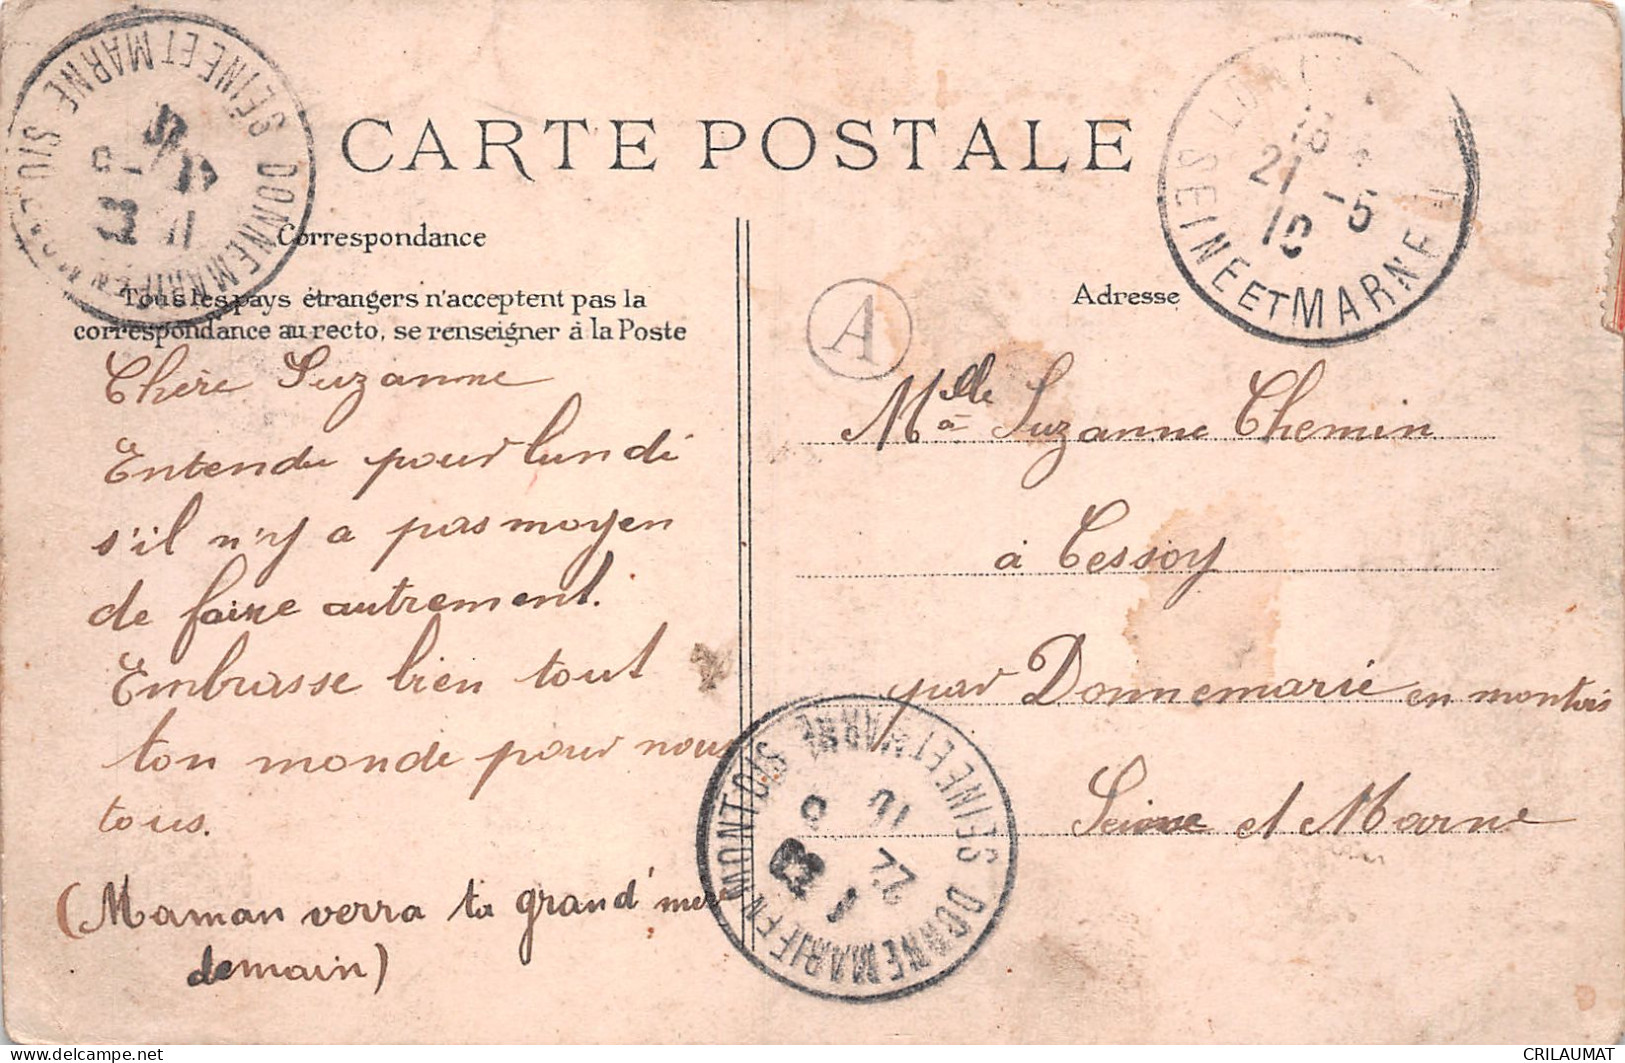 CARTE POSTALE
Correspondance
Tous les pays étrangers n'acceptent pas la
correspondance au recto, se renseigner à la Poste
Chère Suzanne
Entendu pour lundi
s'il n'y a pas moyen
de faire autrement.
Embrasse bien tout
ton monde pour nous
tous.
(Maman verra ta grand'mère
demain)
Adresse
A
Melle Suzanne Chemin
à Cessoy
par Donnemarie en montois
Seine et Marne
SEINE ET MARNE
21 -5
10
DONNEMARIE EN MONTOIS
SEINE ET MARNE
22 5
10
DONNEMARIE EN MONTOIS
SEINE ET MARNE
CRILAUMAT